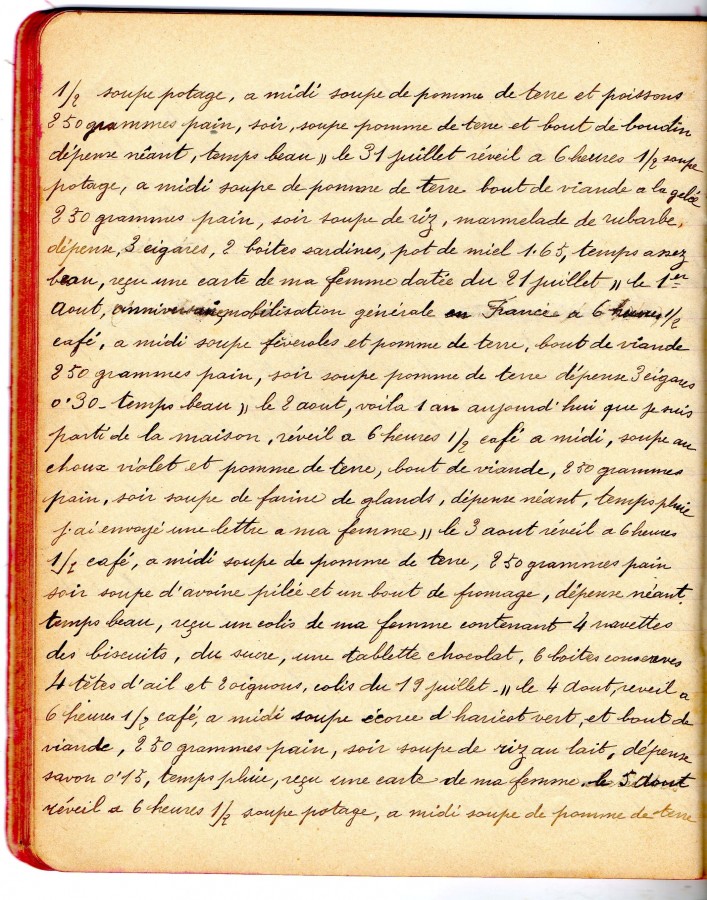 1/2 soupe potage, a midi soupe de pomme de terre et poissons
250 grammes pain, soir, soupe pomme de terre et bout de boudin
dépense nèant, temps beau, „ le 31 juillet réveil a 6 heures 1/2 soupe
potage, a midi soupe de pomme de terre bout de viande a la gelée
250 grammes pain, soir soupe de riz, marmelade de rubarbe,
dépense, 3 cigares, 2 boites sardines, pot de miel 1.65, temps assez
beau, reçu une carte de ma femme datée du 21 juillet „ le 1er
Aout, anniversaire, mobilisation générale en France a 6 heures 1/2
café, a midi soupe féveroles et pomme de terre, bout de viande
250 grammes pain, soir soupe pomme de terre dépense 3 cigares
0'30 - temps beau „ le 2 aout, voila 1 an aujourd'hui que je suis
parti de la maison, réveil a 6 heures 1/2 café a midi, soupe au
choux violet et pomme de terre, bout de viande, 250 grammes
pain, soir soupe de farine de glands, dépense néant, temps pluie
j'ai envoyé une lettre a ma femme „ le 3 aout réveil a 6 heures
1/2 café, a midi soupe de pomme de terre, 250 grammes pain
soir soupe d'avoine pilée et un bout de fromage, dépense néant,
temps beau, reçu un colis de ma femme contenant 4 navettes
des biscuits, du sucre, une tablette chocolat, 6 boites conserves
4 têtes d'ail et 2 oignons, colis du 19 juillet - „ le 4 aout, reveil a
6 heures 1/2 café, a midi soupe écorce d'haricot vert, et bout de
viande, 250 grammes pain, soir soupe de riz au lait, dépense
savon 0'15, temps pluie, reçu une carte de ma femme, le 5 aout
réveil a 6 heures 1/2 soupe potage, a midi soupe de pomme de terre